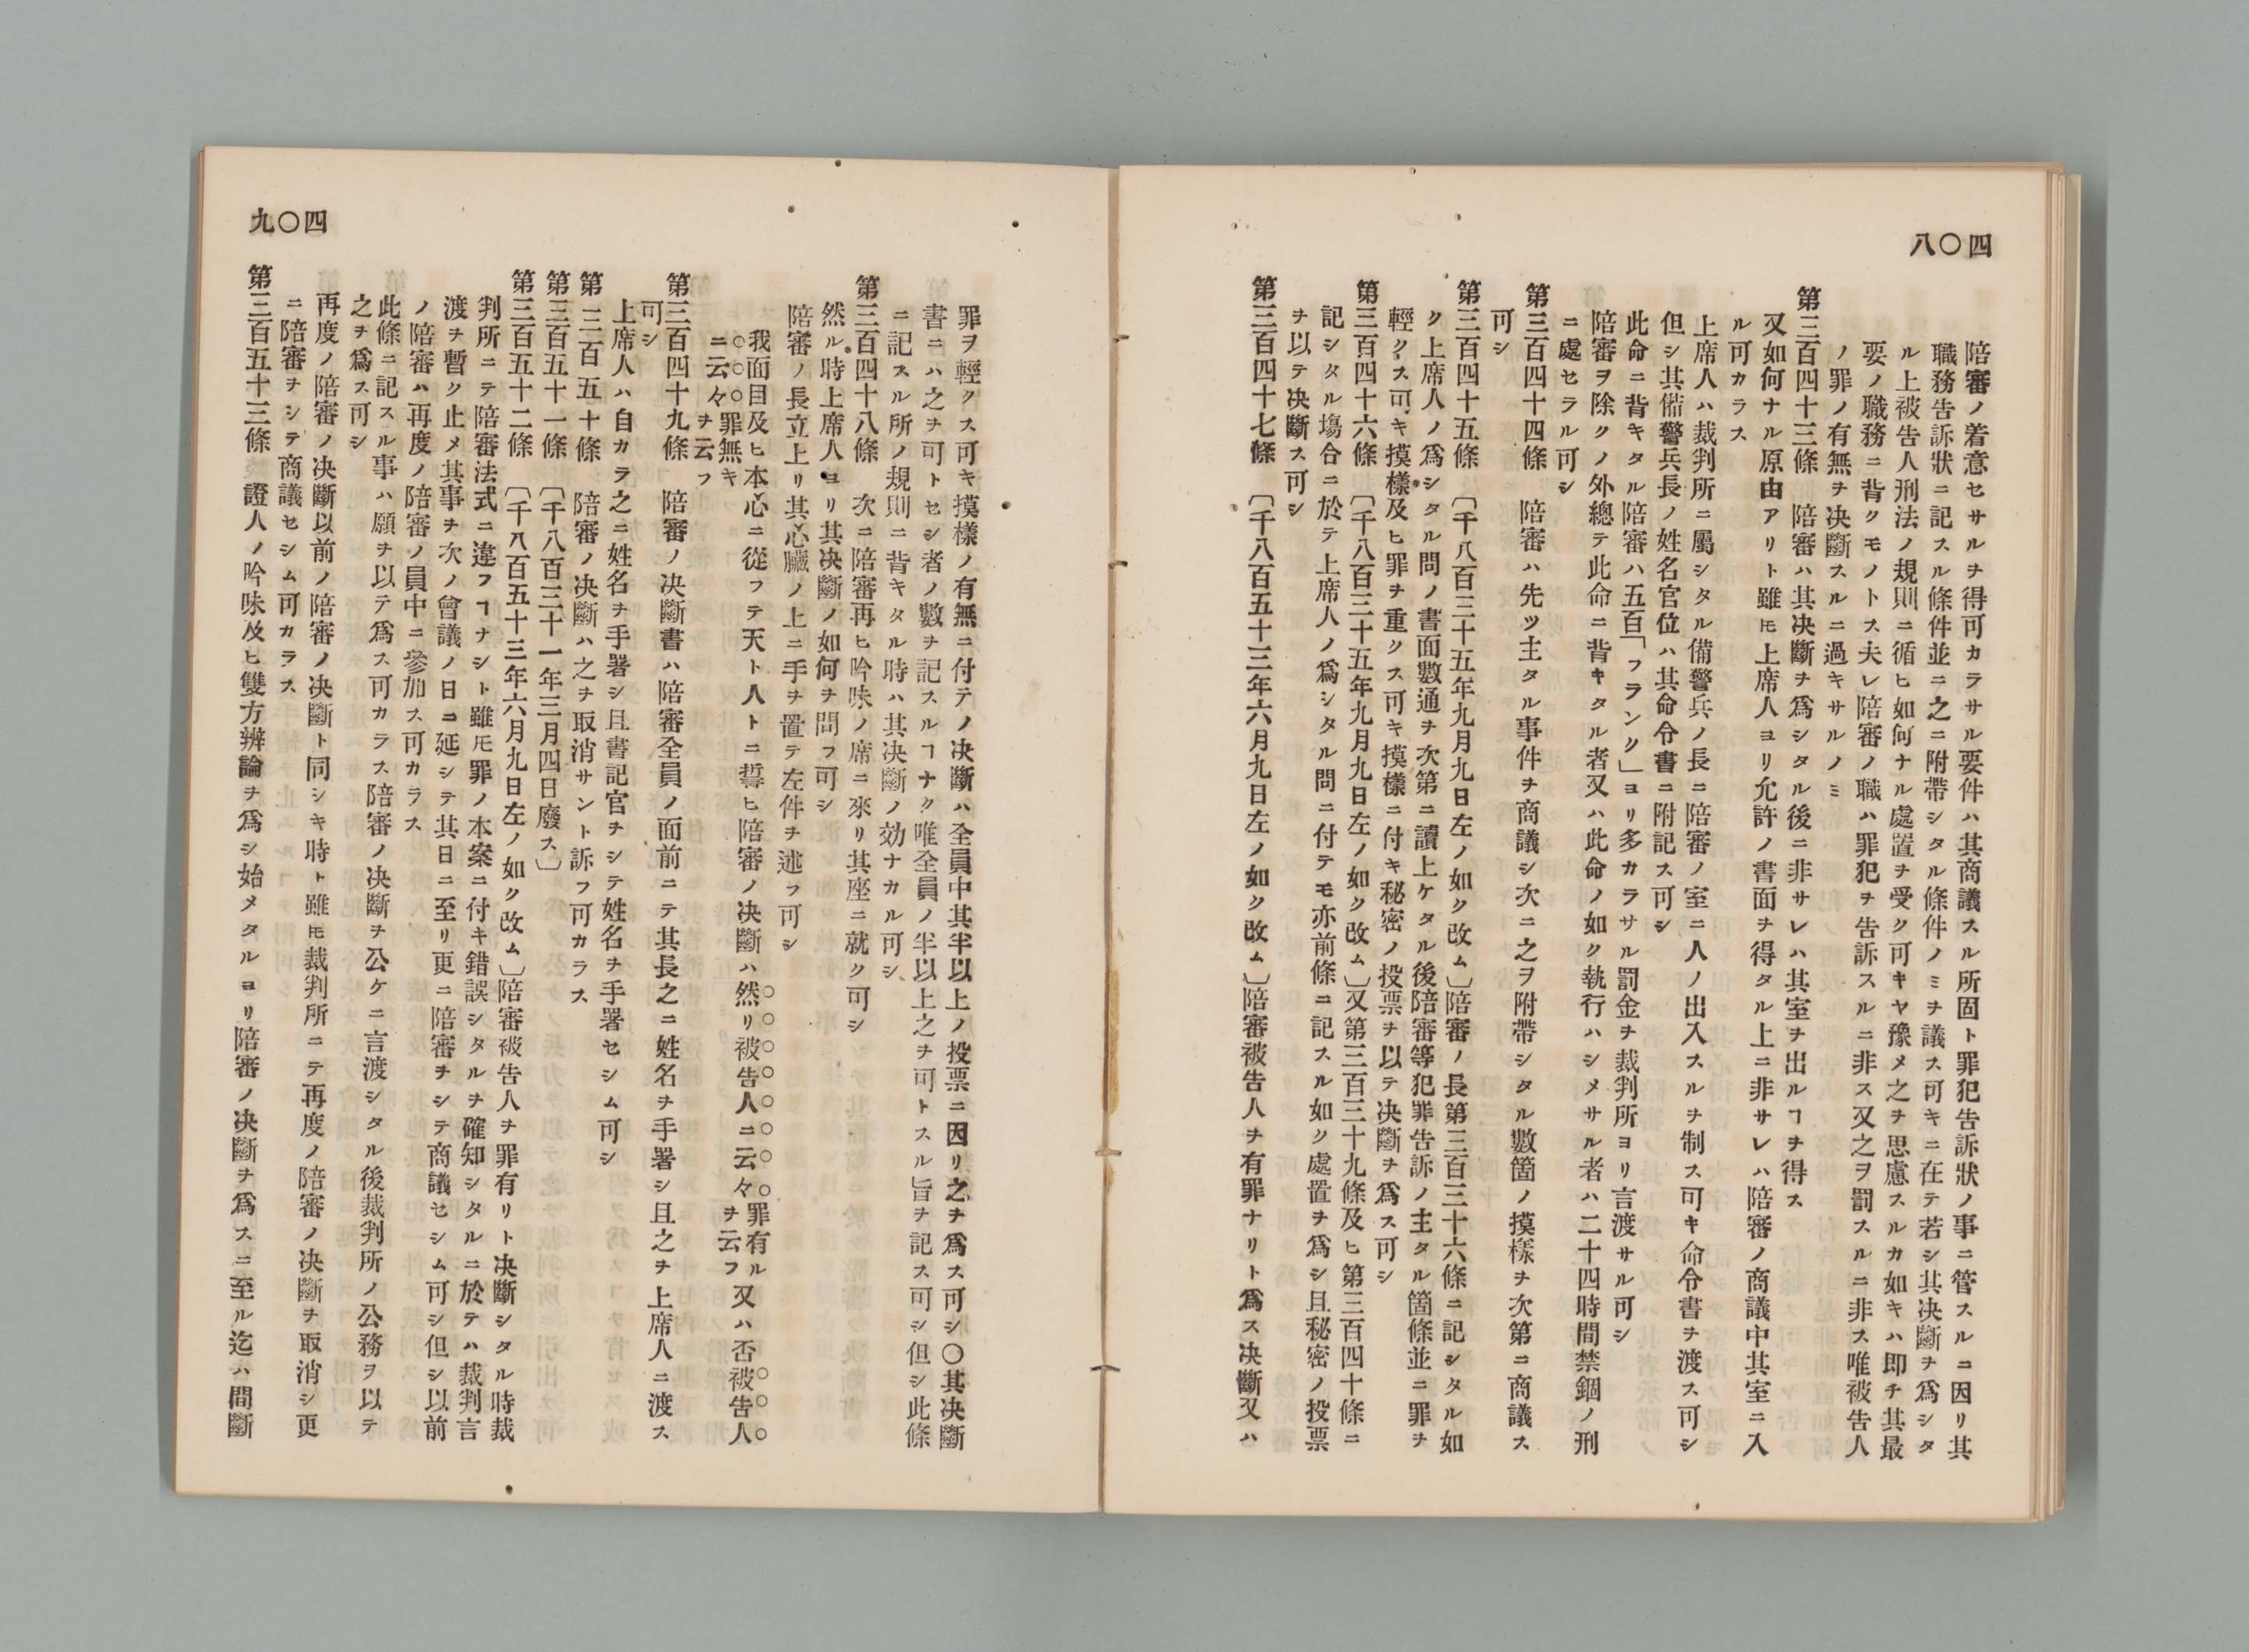 四〇八
陪審ノ着意セサルヲ得可カラサル要件ハ其商議スル所固ト罪犯告訴狀ノ事ニ管スルニ因リ其
職務告訴狀ニ記スル條件並ニ之ニ附帶シタル條件ノミヲ議ス可キニ在テ若シ其决斷ヲ爲シタ
ル上被告人刑法ノ規則ニ循ヒ如何ナル處置ヲ受ク可キヤ豫メ之ヲ思慮スルカ如キハ即チ其最
要ノ職務ニ背クモノトス夫レ陪審ノ職ハ罪犯ヲ告訴スルニ非ス又之ヲ罰スルニ非ス唯被告人
ノ罪ノ有無ヲ决斷スルニ過キサルノミ
第三百四十三條 陪審ハ其决斷ヲ爲シタル後ニ非サレハ其室ヲ出ルヿヲ得ス
又如何ナル原由アリト雖𪜈上席人ヨリ允許ノ書面ヲ得タル上ニ非サレハ陪審ノ商議中其室ニ入
ル可カラス
上席人ハ裁判所ニ屬シタル備警兵ノ長ニ陪審ノ室ニ人ノ出入スルヲ制ス可キ命令書ヲ渡ス可シ
但シ其備警兵長ノ姓名官位ハ其命令書ニ附記ス可シ
此命ニ背キタル陪審ハ五百「フランク」ヨリ多カラサル罰金ヲ裁判所ヨリ言渡サル可シ
陪審ヲ除クノ外總テ此命ニ背キタル者又ハ此命ノ如ク執行ハシメサル者ハ二十四時間禁錮ノ刑
ニ處セラル可シ
第三百四十四條 陪審ハ先ツ主タル事件ヲ商議シ次ニ之ヲ附帶シタル數箇ノ摸樣ヲ次第ニ商議ス
可シ
第三百四十五條 〔千八百三十五年九月九日左ノ如ク改ム〕陪審ノ長第三百三十六條ニ記シタル如
ク上席人ノ爲シタル問ノ書面數通ヲ次第ニ讀上ケタル後陪審等犯罪告訴ノ主タル箇條並ニ罪ヲ
輕クス可キ摸樣及ヒ罪ヲ重クス可キ摸樣ニ付キ秘密ノ投票ヲ以テ决斷ヲ爲ス可シ
第三百四十六條 〔千八百三十五年九月九日左ノ如ク改ム〕又第三百三十九條及ヒ第三百四十條ニ
記シタル塲合ニ於テ上席人ノ爲シタル問ニ付テモ亦前條ニ記スル如ク處置ヲ爲シ且秘密ノ投票
ヲ以テ决斷ス可シ
第三百四十七條 〔千八百五十三年六月九日左ノ如ク改ム〕陪審被告人ヲ有罪ナリト爲ス决斷又ハ
四〇九
罪ヲ輕クス可キ摸樣ノ有無ニ付テノ决斷ハ全員中其半以上ノ投票ニ因リ之ヲ爲ス可シ〇其决斷
書ニハ之ヲ可トセシ者ノ數ヲ記スルヿナク唯全員ノ半以上之ヲ可トスル旨ヲ記ス可シ但シ此條
ニ記スル所ノ規則ニ背キタル時ハ其决斷ノ効ナカル可シ
第三百四十八條 次ニ陪審再ヒ吟味ノ席ニ來リ其座ニ就ク可シ
然ル時上席人ヨリ其决斷ノ如何ヲ問フ可シ
陪審ノ長立上リ其心臟ノ上ニ手ヲ置テ左件ヲ述フ可シ
我面目及ヒ本心ニ從フテ天ト人トニ誓ヒ陪審ノ决斷ハ然リ被告人ニ云々ヲ云フ罪有ル又ハ否被告人
ニ云々ヲ云フ罪無キ
第三百四十九條 陪審ノ决斷書ハ陪審全員ノ面前ニテ其長之ニ姓名ヲ手署シ且之ヲ上席人ニ渡ス
可シ
上席人ハ自カラ之ニ姓名ヲ手署シ且書記官ヲシテ姓名ヲ手署セシム可シ
第三百五十條 陪審ノ决斷ハ之ヲ取消サント訴フ可カラス
第三百五十一條 〔千八百三十一年三月四日廢ス〕
第三百五十二條 〔千八百五十三年六月九日左ノ如ク改ム〕陪審被告人ヲ罪有リト决斷シタル時裁
判所ニテ陪審法式ニ違フヿナシト雖𪜈罪ノ本案ニ付キ錯誤シタルヲ確知シタルニ於テハ裁判言
渡ヲ暫ク止メ其事ヲ次ノ會議ノ日ニ延シテ其日ニ至リ更ニ陪審ヲシテ商議セシム可シ但シ以前
ノ陪審ハ再度ノ陪審ノ員中ニ參加ス可カラス
此條ニ記スル事ハ願ヲ以テ爲ス可カラス陪審ノ决斷ヲ公ケニ言渡シタル後裁判所ノ公務ヲ以テ
之ヲ爲ス可シ
再度ノ陪審ノ决斷以前ノ陪審ノ决斷ト同シキ時ト雖𪜈裁判所ニテ再度ノ陪審ノ决斷ヲ取消シ更
ニ陪審ヲシテ商議セシム可カラス
第三百五十三條 證人ノ吟味及ヒ雙方辨論ヲ爲シ始メタルヨリ陪審ノ决斷ヲ爲スニ至ル迄ハ間斷